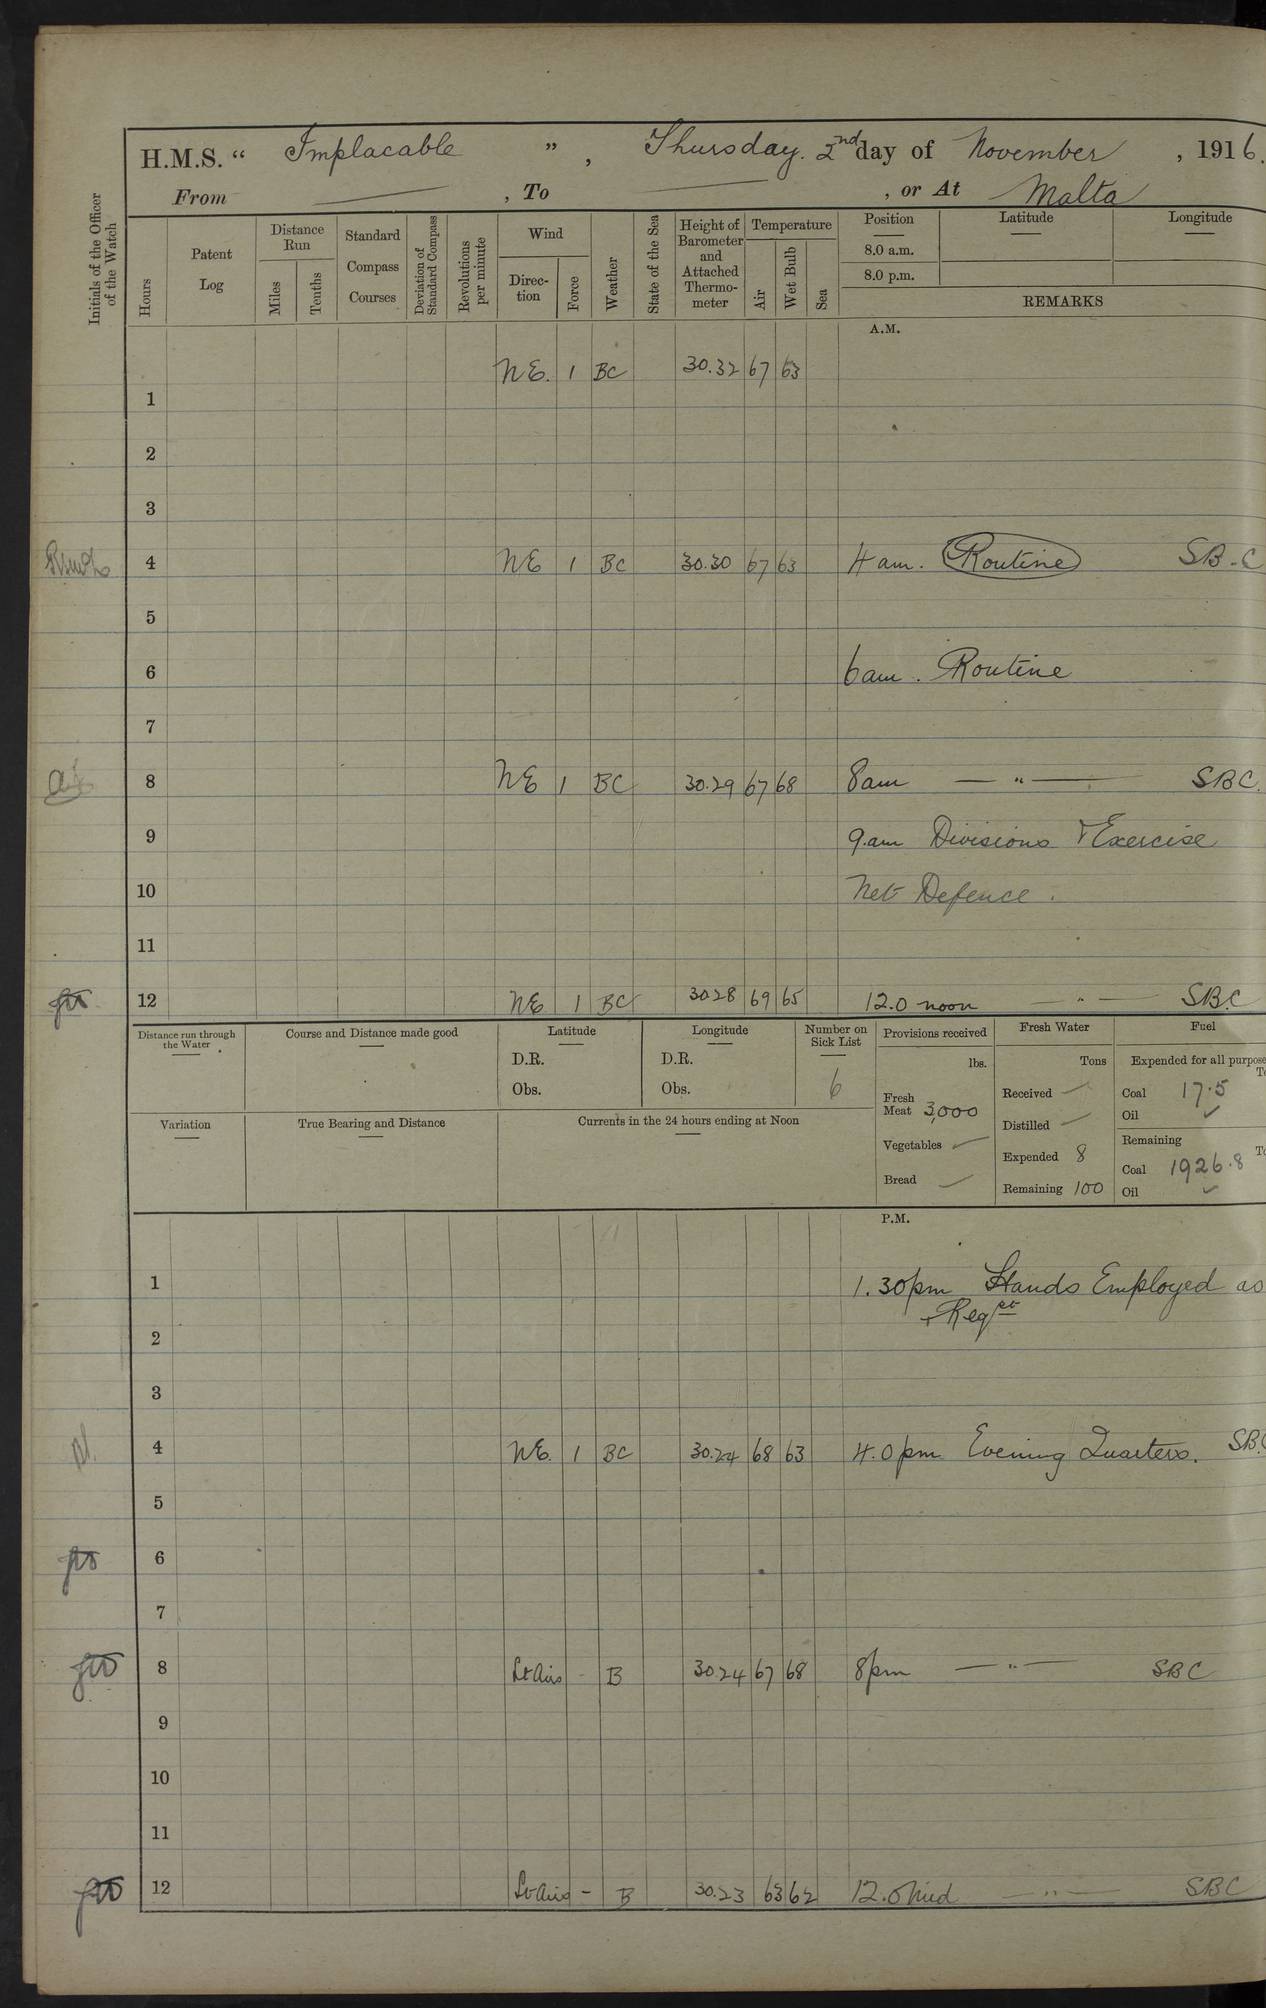 H.M.S. “ Implacable ” , Thursday. 2nd day of November , 1916.
From — , To — , or At Malta
Initials of the Officer of the Watch
Hours
Patent Log
Distance Run
Miles
Tenths
Standard Compass Courses
Deviation of Standard Compass
Revolutions per minute
Wind
Direc-tion
Force
Weather
State of the Sea
Height of Barometer and Attached Thermo-meter
Temperature
Air
Wet Bulb
Sea
Position
Latitude
Longitude
8.0 a.m.
8.0 p.m.
REMARKS
A.M.
NE. 1 BC 30.32 67 63
1
2
3
4 NE 1 BC 30.30 67 63 4 am. Routine SB.C
5
6 6 am. Routine
7
8 NE 1 BC 30.29 67 68 8am — " — SBC.
9 9.am Divisions & Exercise
10 Net Defence.
11
12 NE 1 BC 30 28 69 65 12.0 noon — " — SBC
Distance run through the Water
Course and Distance made good
Latitude
D.R.
Obs.
Longitude
D.R.
Obs.
Number on Sick List
6
Provisions received
lbs.
Fresh Meat 3,000
Vegetables ✓
Bread ✓
Fresh Water
Tons
Received ✓
Distilled ✓
Expended 8
Remaining 100
Fuel
Expended for all purpose
To
Coal 17.5
Oil ✓
Remaining
To
Coal 1926.8
Oil ✓
Variation
True Bearing and Distance
Currents in the 24 hours ending at Noon
P.M.
1 1.30pm Hands Employed as
Reqst
2
3
4 NE. 1 BC 30.24 68 63 4.0 pm Evening Quarters. SB.C
5
6
7
8 Lt Airs - B 30.24 67 68 8pm — " — SBC
9
10
11
12 Lt Airs - B 30.23 63 62 12.0 Mid — " — SBC